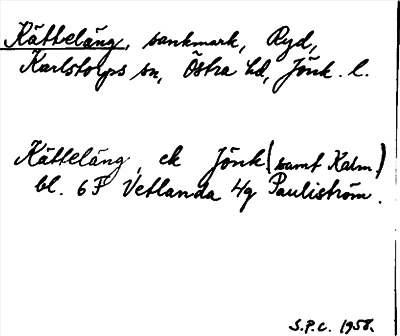 Kätteläng, sankmark, Ryd,
Karlstorps sn, Östra hd, Jönk. l.
Kätteläng, ek Jönk (samt Kalm.)
bl. 6F Vetlanda 4g Pauliström.
S.P.C. 1958.